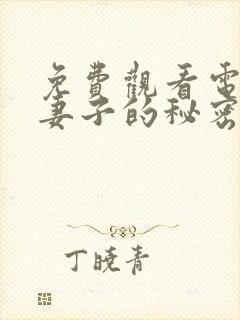 免費觀看電
妻子的秘密
丁曉青